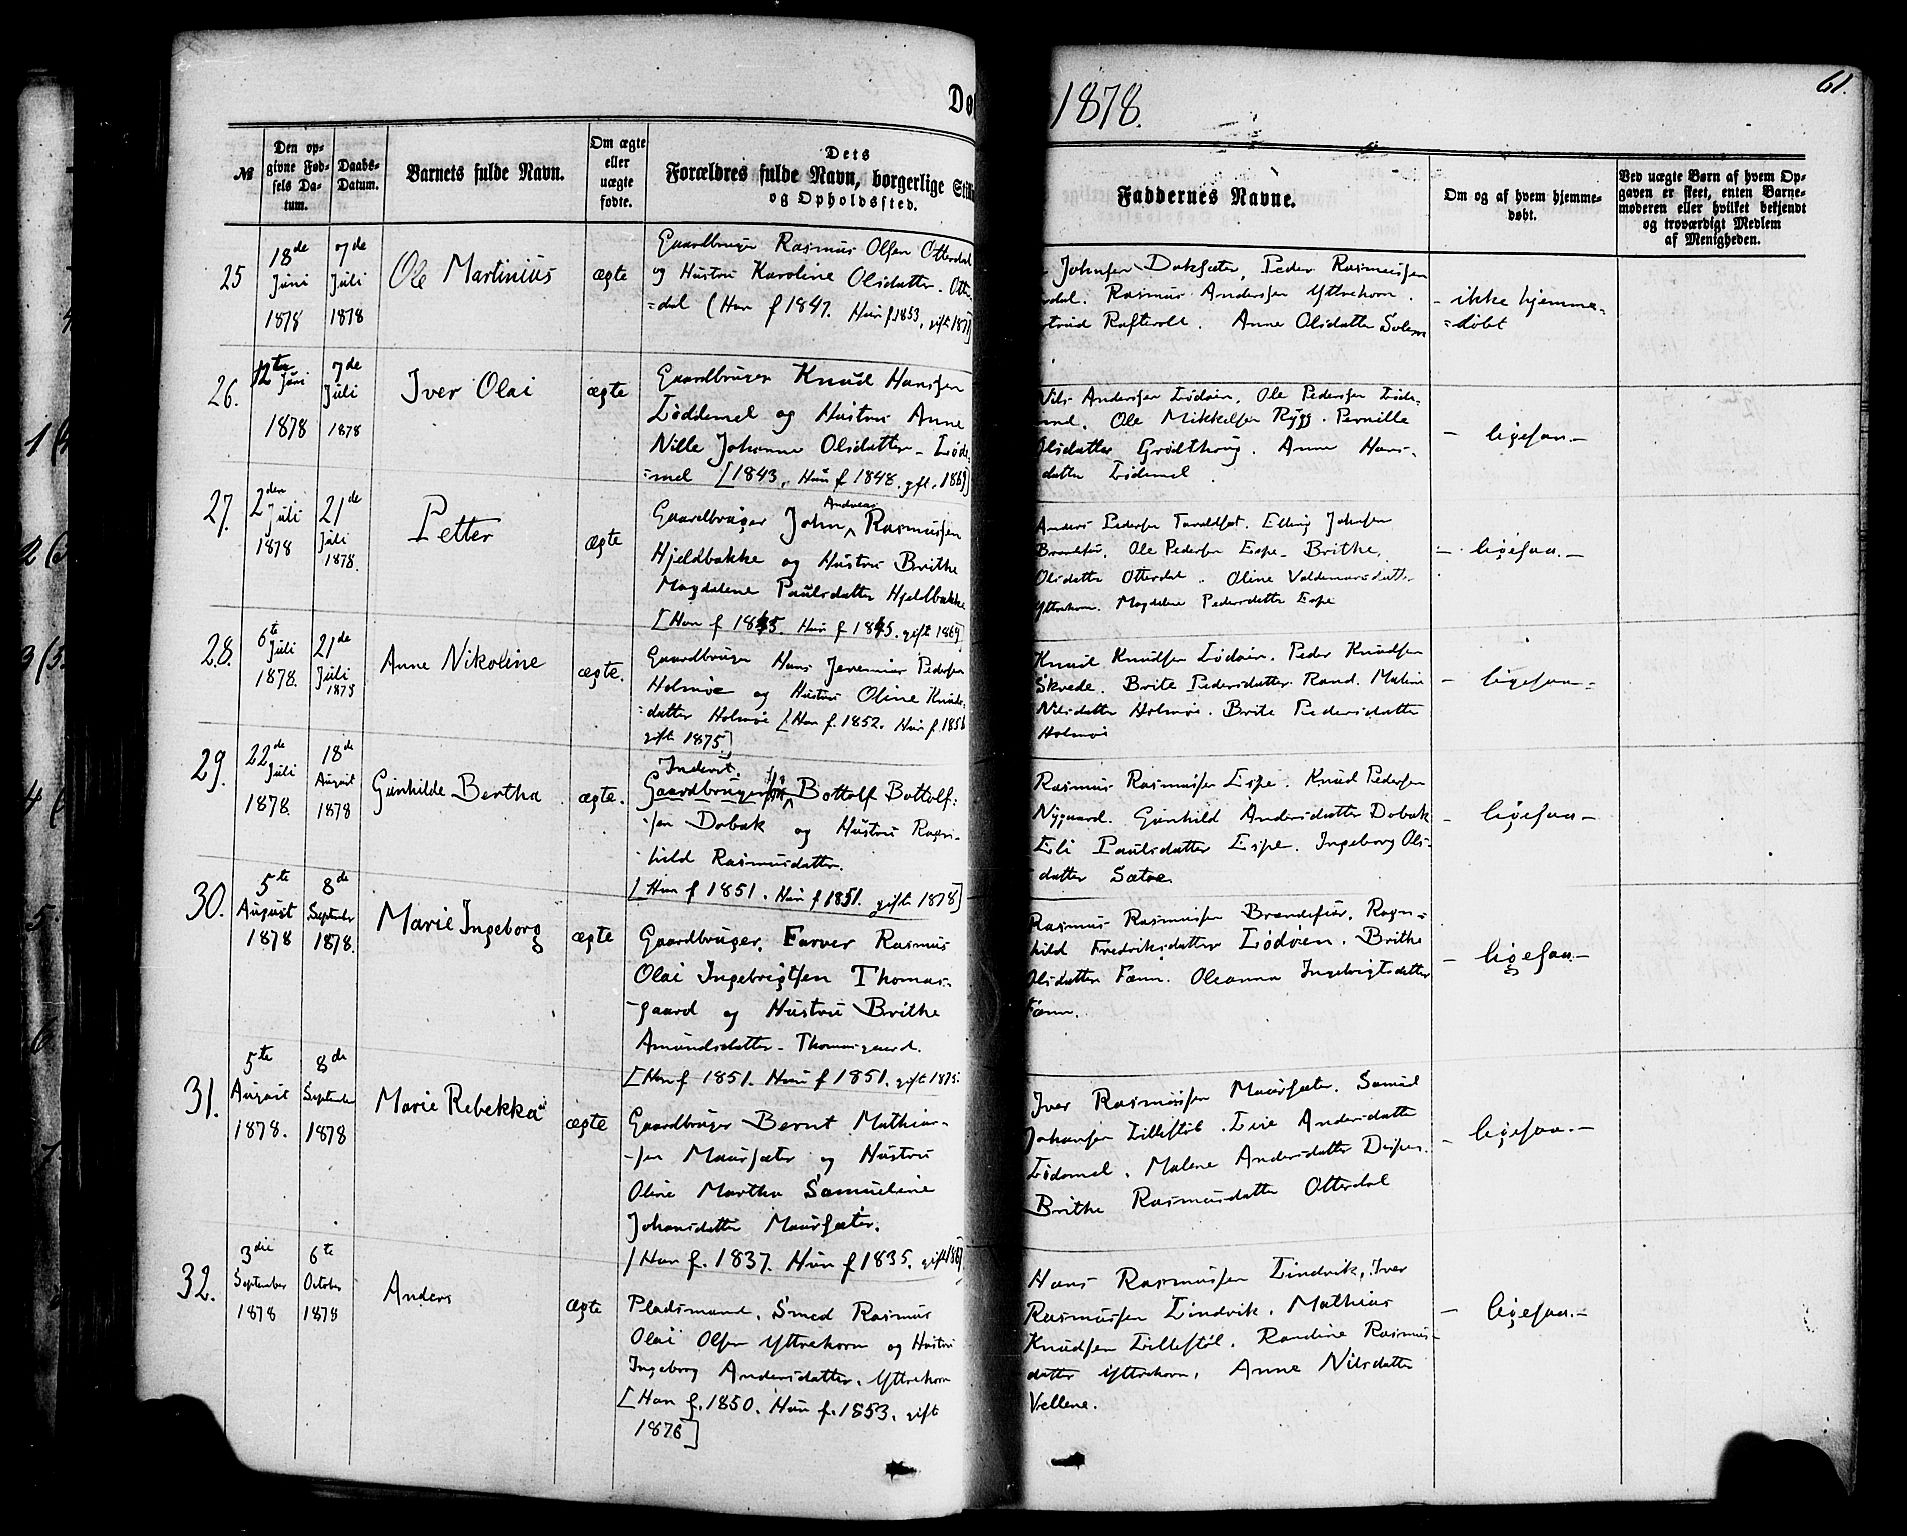 Dø
1878.
61.
№
Den op-
givne Fød-
sels Da-
tum.
Daabs-
Datum.
Barnets fulde Navn.
Om ægte
eller
uægte
fødte.
Dets
Forældres fulde Navn, borgerlige Sti
og Opholdssted.
Faddernes Navne.
Om og af hvem hjemme-
døbt.
Ved uægte Børn af hvem Op-
gaven er skeet, enten Barne-
moderen eller hvilket bekjendt
og troværdigt Medlem
af Menigheden.
25
18de
Juni
1878
7de
Juli
1878
Ole Martinius
ægte
Gaardbruger Rasmus Olsen Otterdal
og Hustru Karoline Olsdatter. Otter
=dal (Han f 1847. Hun f 1853, gift 187
Johnsen Doksæter, Peder Rasmussen
dal. Rasmus Andersen Yttrehorn.
Raftevold. Anne Olsdatter Solem
- ikke hjemme-
=døbt
26.
Juni
1878
7de
Juli
1878
Iver Olai
ægte
Gaardbruger Knud Hanssen
Løddemel og Hustru Anne
Nille Johanne Olsdatter - Løde
=mel [1843, Hun f 1848. gft. 1869]
Nils Andersen Lødøen, Ole Pedersen Løde-
mel. Ole Mikkelsen Rygg. Pernille
Olsdatter Grodthoug. Anne Hans-
datter Lødemel
- ligesaa -
27.
2den
Juli
1878
21de
Juli
1878.
Petter
ægte
Gaardbruger John Andreas Rasmussen
Hjeldbakke og Hustru Brithe
Magdalene Paulsdatter Hjeldbakke
[Han f 1845. Hun f 1845. gift 1869]
Anders Pedersen Taraldset. Elling Johnsen
Ole Pedersen Espe. Brithe
Olsdatter Otterdal. Oline Valdemarsdatter
Yttrehorn. Magdalene Pedersdatter Espe
- ligesaa. -
28.
6te
Juli
1878.
21de
Juli
1878
Anne Nikoline
ægte.
Gaardbruger Hans Jeremias Pedersen
Holmøe og Hustru Oline Knuds-
=datter Holmøe [Han f. 1852. Hun f. 1856
gift 1875]
Knud Knudsen Lødøen. Peder Knudsen
Skrede. Brite Pedersdatter Rand. Maline
Nilsdatter Holmøe. Brite Pedersdatter
Holmøe
- ligesaa -
29.
22de
Juli
1878.
18de
August
1878
Gunhilde Bertha
ægte.
Inderst.
Gaardbruger Bottolf Bottolf-
-sen Dobak og Hustru Ragn-
-hild Rasmusdatter.
[Han f 1851. Hun f 1851. gift 1878]
Rasmus Rasmussen Espe. Knud Pedersen
Nygaard. Gunhild Andersdatter Dobak
Eli Paulsdatter Espe. Ingeborg Ols-
datter Sætre.
- ligesaa -
30.
5te
August
1878
8de
September
1878.
Marie Ingeborg
ægte
Gaardbruger, Farver Rasmus
Olai Ingebrigtsen Thomas-
-gaard og Hustru Brithe
Amundsdatter - Thomasgaard.
[Han f 1851. Hun f 1851. gift 1875.
Rasmus Rasmussen Brendefur. Ragn-
hild Fredriksdatter Lødøen. Brithe
Olsdatter Fænn. Oleanna Ingebrigtsdatter
Fænn.
- ligesaa -
31.
5te
August
1878.
8de
September
1878
Marie Rebekka
ægte
Gaardbruger Bernt Mathias-
-sen Maursæter og Hustru
Oline Martha Samueline
Johansdatter Maursæter.
[Han f. 1837. Hun f 1835. gift 186
Iver Rasmussen Maursæter. Samuel
Johansen Lillestøl. Lise Andersdatter
Lødemel. Malene Andersdatter
Brithe Rasmusdatter Otterdal
- ligesaa. -
32.
3die
September
1878
6te
October
1878
Anders
ægte
Pladsmand, Smed Rasmus
Olai Olsen Yttrehorn og Hustru
Ingeborg Andersdatter. Yttrehorn
[Han f. 1850. Hun f. 1853. gift
1876]
Hans Rasmussen Lindvik, Iver
Rasmussen Lindvik. Mathias
Knudsen Lillestøl. Randine Rasmus-
datter Yttrehorn. Anne Nilsdatter
Vellene.
- ligesaa. -